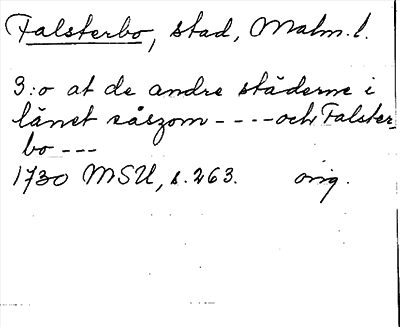 Falsterbo, stad, Malm. l.
3:o at de andre städerne i
länet såszom - - - - och Falster-
bo - - -
1730 MSU, s. 263. orig.